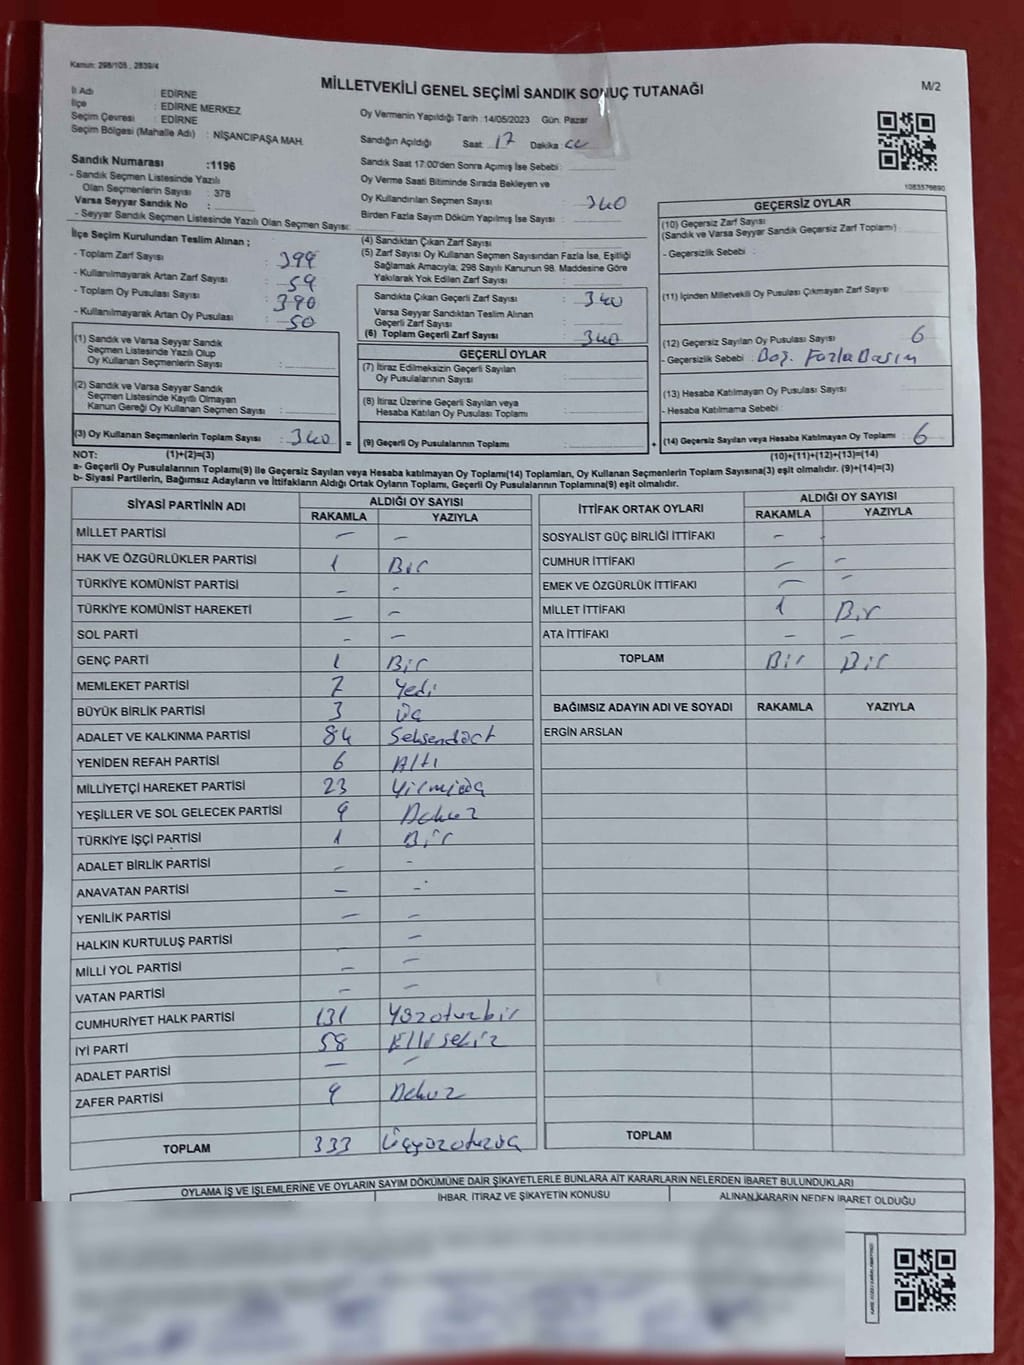 Kanun: 298/105 , 2839/4
MİLLETVEKİLİ GENEL SEÇİMİ SANDIK SONUÇ TUTANAĞI
M/2
İl Adı : EDİRNE
İlçe : EDİRNE MERKEZ
Seçim Çevresi : EDİRNE
Seçim Bölgesi (Mahalle Adı) : NİŞANCIPAŞA MAH.
Sandık Numarası :1196
- Sandık Seçmen Listesinde Yazılı
Olan Seçmenlerin Sayısı : 378
Varsa Seyyar Sandık No :
- Seyyar Sandık Seçmen Listesinde Yazılı Olan Seçmen Sayısı:
Oy Vermenin Yapıldığı Tarih :14/05/2023 Gün: Pazar
Sandığın Açıldığı Saat: 17 Dakika:
Sandık Saat 17:00'den Sonra Açımış İse Sebebi:
Oy Verme Saati Bitiminde Sırada Bekleyen ve
Oy Kullandırılan Seçmen Sayısı : 340
Birden Fazla Sayım Döküm Yapılmış İse Sayısı :
1083576690
İlçe Seçim Kurulundan Teslim Alınan ;
- Toplam Zarf Sayısı : 399
- Kullanılmayarak Artan Zarf Sayısı : 59
- Toplam Oy Pusulası Sayısı : 390
- Kullanılmayarak Artan Oy Pusulası : 50
(1) Sandık ve Varsa Seyyar Sandık
Seçmen Listesinde Yazılı Olup
Oy Kullanan Seçmenlerin Sayısı :
(2) Sandık ve Varsa Seyyar Sandık
Seçmen Listesinde Kayıtlı Olmayan
Kanun Gereği Oy Kullanan Seçmen Sayısı :
(3) Oy Kullanan Seçmenlerin Toplam Sayısı : 340 =
(4) Sandıktan Çıkan Zarf Sayısı :
(5) Zarf Sayısı Oy Kullanan Seçmen Sayısından Fazla İse, Eşitliği
Sağlamak Amacıyla; 298 Sayılı Kanunun 98. Maddesine Göre
Yakılarak Yok Edilen Zarf Sayısı :
Sandıkta Çıkan Geçerli Zarf Sayısı : 340
Varsa Seyyar Sandıktan Teslim Alınan
Geçerli Zarf Sayısı :
(6) Toplam Geçerli Zarf Sayısı : 340
GEÇERLİ OYLAR
(7) İtiraz Edilmeksizin Geçerli Sayılan
Oy Pusulalarının Sayısı :
(8) İtiraz Üzerine Geçerli Sayılan veya
Hesaba Katılan Oy Pusulası Toplamı :
(9) Geçerli Oy Pusulalarının Toplamı : +
GEÇERSİZ OYLAR
(10) Geçersiz Zarf Sayısı
(Sandık ve Varsa Seyyar Sandık Geçersiz Zarf Toplamı) :
- Geçersizlik Sebebi :
(11) İçinden Milletvekili Oy Pusulası Çıkmayan Zarf Sayısı :
(12) Geçersiz Sayılan Oy Pusulası Sayısı : 6
- Geçersizlik Sebebi : Fazla Basım
(13) Hesaba Katılmayan Oy Pusulası Sayısı :
- Hesaba Katılmama Sebebi :
(14) Geçersiz Sayılan veya Hesaba Katılmayan Oy Toplamı : 6
NOT: (1)+(2)=(3) (10)+(11)+(12)+(13)=(14)
a- Geçerli Oy Pusulalarının Toplamı(9) ile Geçersiz Sayılan veya Hesaba katılmayan Oy Toplamı(14) Toplamları, Oy Kullanan Seçmenlerin Toplam Sayısına(3) eşit olmalıdır. (9)+(14)=(3)
b- Siyasi Partilerin, Bağımsız Adayların ve İttifakların Aldığı Ortak Oyların Toplamı, Geçerli Oy Pusulalarının Toplamına(9) eşit olmalıdır.
SİYASİ PARTİNİN ADI ALDIĞI OY SAYISI
RAKAMLA YAZIYLA
MİLLET PARTİSİ – –
HAK VE ÖZGÜRLÜKLER PARTİSİ 1 Bir
TÜRKİYE KOMÜNİST PARTİSİ – –
TÜRKİYE KOMÜNİST HAREKETİ – –
SOL PARTİ – –
GENÇ PARTİ 1 Bir
MEMLEKET PARTİSİ 7 Yedi
BÜYÜK BİRLİK PARTİSİ 3 Üç
ADALET VE KALKINMA PARTİSİ 84 Seksendört
YENİDEN REFAH PARTİSİ 6 Altı
MİLLİYETÇİ HAREKET PARTİSİ 23 Yirmiüç
YEŞİLLER VE SOL GELECEK PARTİSİ 9 Dokuz
TÜRKİYE İŞÇİ PARTİSİ 1 Bir
ADALET BİRLİK PARTİSİ – –
ANAVATAN PARTİSİ – –
YENİLİK PARTİSİ – –
HALKIN KURTULUŞ PARTİSİ –
MİLLİ YOL PARTİSİ – –
VATAN PARTİSİ – –
CUMHURİYET HALK PARTİSİ 131 Yüzotuzbir
İYİ PARTİ 58 Ellisekiz
ADALET PARTİSİ – –
ZAFER PARTİSİ 9 Dokuz
TOPLAM 333 Üçyüzotuzüç
İTTİFAK ORTAK OYLARI ALDIĞI OY SAYISI
RAKAMLA YAZIYLA
SOSYALİST GÜÇ BİRLİĞİ İTTİFAKI –
CUMHUR İTTİFAKI – –
EMEK VE ÖZGÜRLÜK İTTİFAKI – –
MİLLET İTTİFAKI 1 Bir
ATA İTTİFAKI – –
TOPLAM Bir Bir
BAĞIMSIZ ADAYIN ADI VE SOYADI RAKAMLA YAZIYLA
ERGİN ARSLAN
TOPLAM
OYLAMA İŞ VE İŞLEMLERİNE VE OYLARIN SAYIM DÖKÜMÜNE DAİR ŞİKAYETLERLE BUNLARA AİT KARARLARIN NELERDEN İBARET BULUNDUKLARI
İHBAR, İTİRAZ VE ŞİKAYETİN KONUSU ALINAN KARARIN NEDEN İBARET OLDUĞU